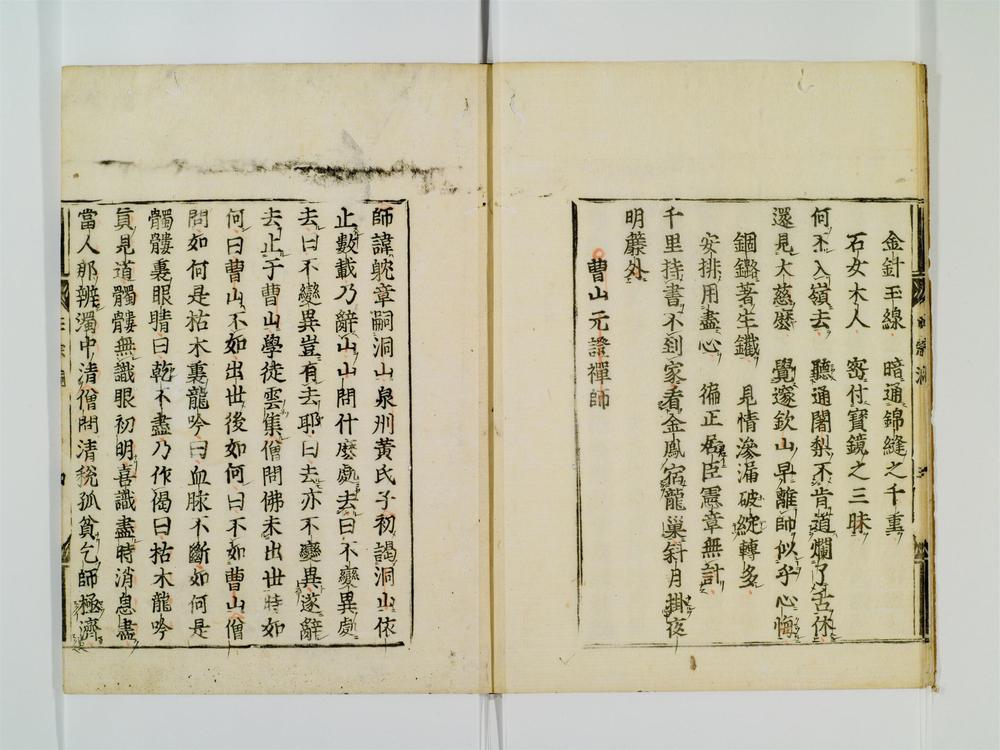 金針玉線　暗通錦縫之千重
石女木人　密付寶鏡之三昧
何不入嶺去　聽通闍梨不肯道爛了舌休
還見大慈麽　覺邃欽山早離師似乎心悔
錮鏴著生鐵　見情滲漏破綻轉多
安排用盡心　徧正君臣憲章無計
千里持書不到家看金鳳宿龍巢斜月掛夜
明簾外
曹山元證禪師
師諱躭章嗣洞山泉州黃氏子初謁洞山依
止數載乃辭山山問什麽處去曰不變異處
去曰不變異豈有去耶曰去亦不變異遂辭
去止于曹山學徒雲集僧問佛未出世時如
何曰曹山不如出世後如何曰不如曹山僧
問如何是枯木裏龍吟曰血脉不斷如何是
髑髏裏眼睛曰乾不盡乃作偈曰枯木龍吟
眞見道髑髏無識眼初明喜識盡時消息盡
當人那辨濁中清僧問清稅孤貧乞師極濟